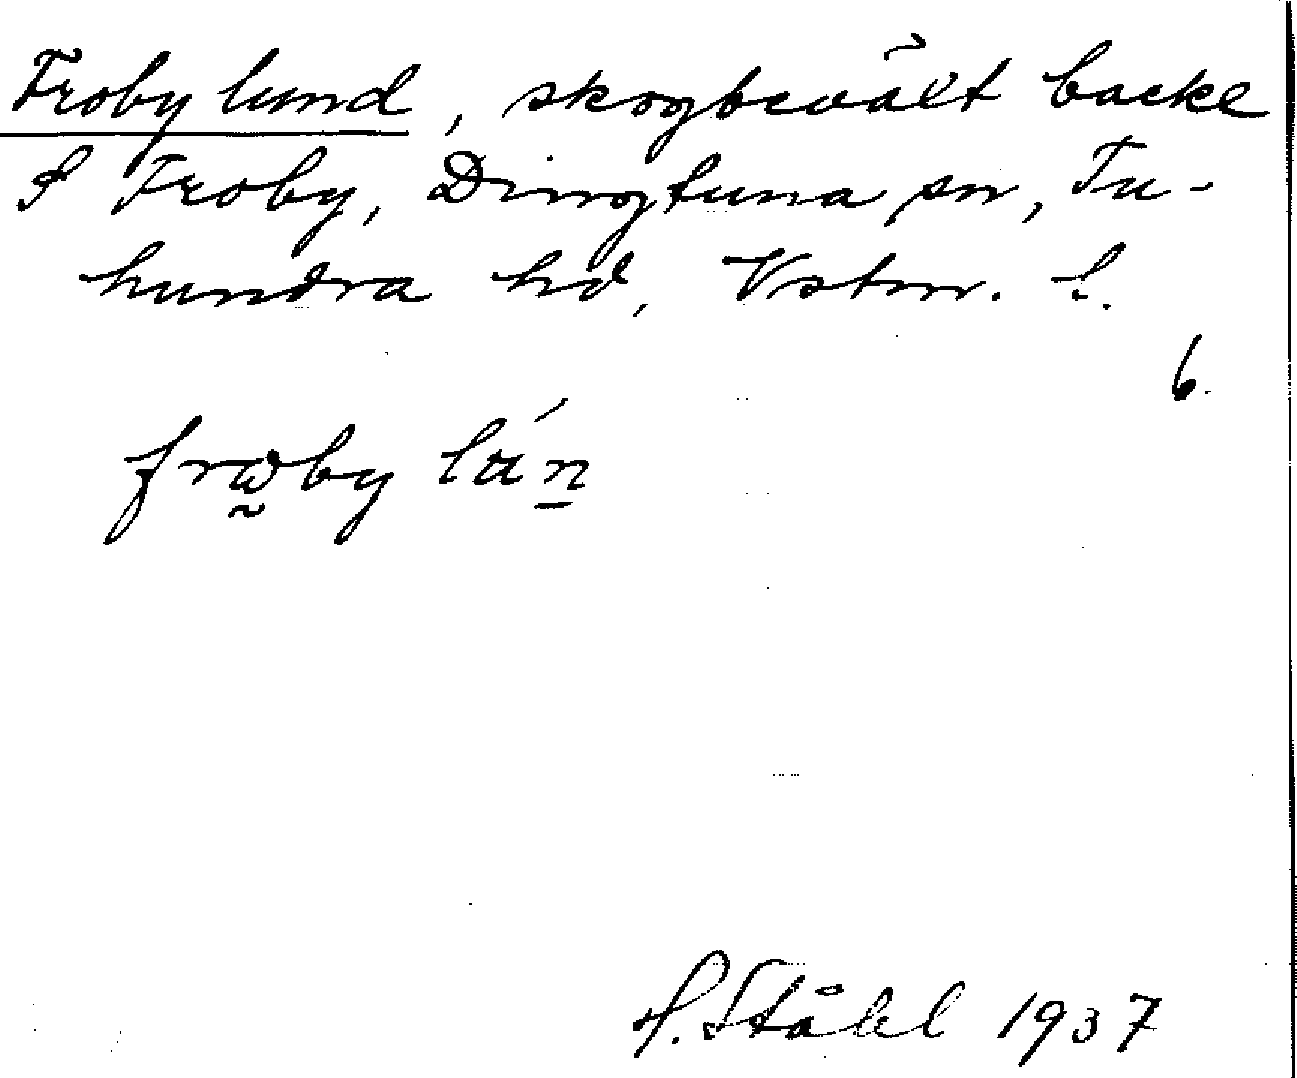 Froby lund, skogbevält backe
S Froby, Dingtuna sn, Tu-
hundra hd, Vstm. l.
6.
frω̰by lán̲
H. Ståhl 1937